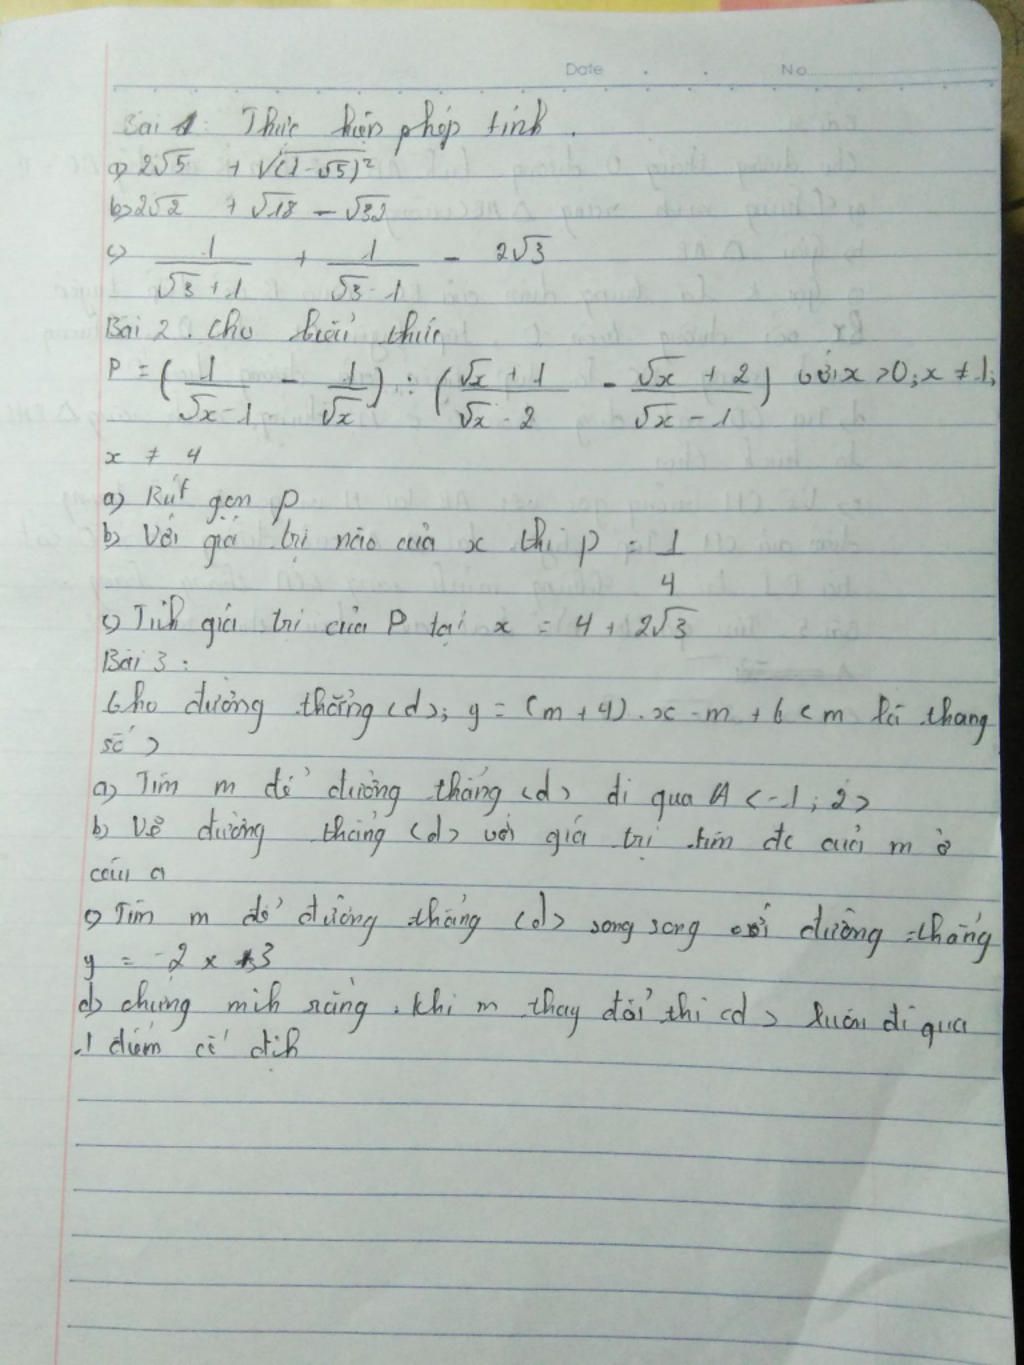 Date . . No
Bài 1: Thực hiện phép tính.
a) 2√5 + √(1-√5)²
b) 2√2 + √18 - √32
c) 1/(√3+1) + 1/(√3-1) - 2√3
Bài 2. Cho biểu thức
P = (1/(√x-1) - 1/√x) : ((√x+1)/(√x-2) - (√x+2)/(√x-1)) với x >0; x ≠ 1;
x ≠ 4
a) Rút gọn P
b) Với giá trị nào của x thì P = 1/4
c) Tính giá trị của P tại x = 4 + 2√3
Bài 3:
Cho đường thẳng (d); y = (m+4).x - m + 6 (m là thang
số)
a) Tìm m để đường thẳng (d) đi qua A (-1; 2)
b) Vẽ đường thẳng (d) với giá trị tìm đc của m ở
câu a
c) Tìm m để đường thẳng (d) song song với đường thẳng
y = -2x +3
d) chứng mih rằng. Khi m thay đổi thì (d) luôn đi qua
1 điểm cố địh